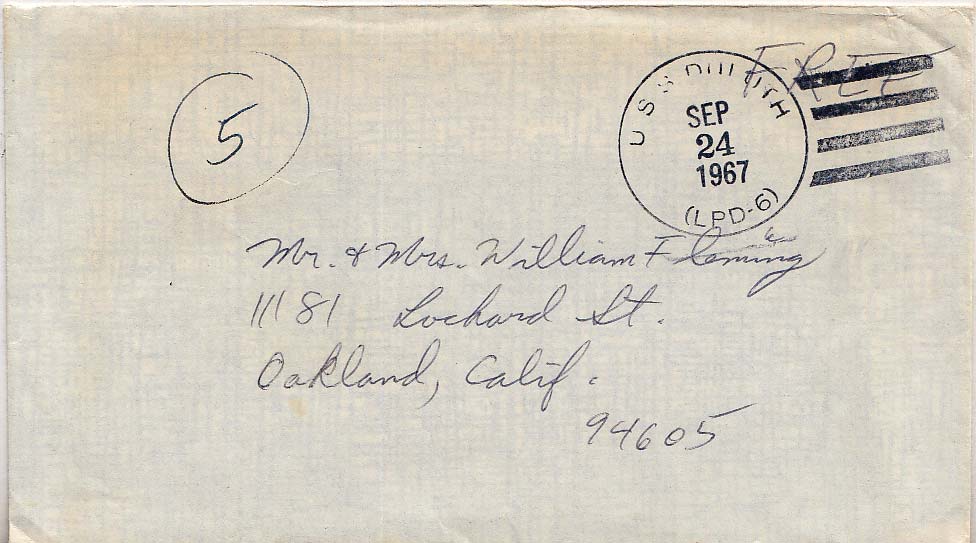 5
FREE
USS DULUTH
SEP
24
1967
(LPD-6)
Mr. & Mrs. William Fleming
11181 Lochard St.
Oakland, Calif.
94605